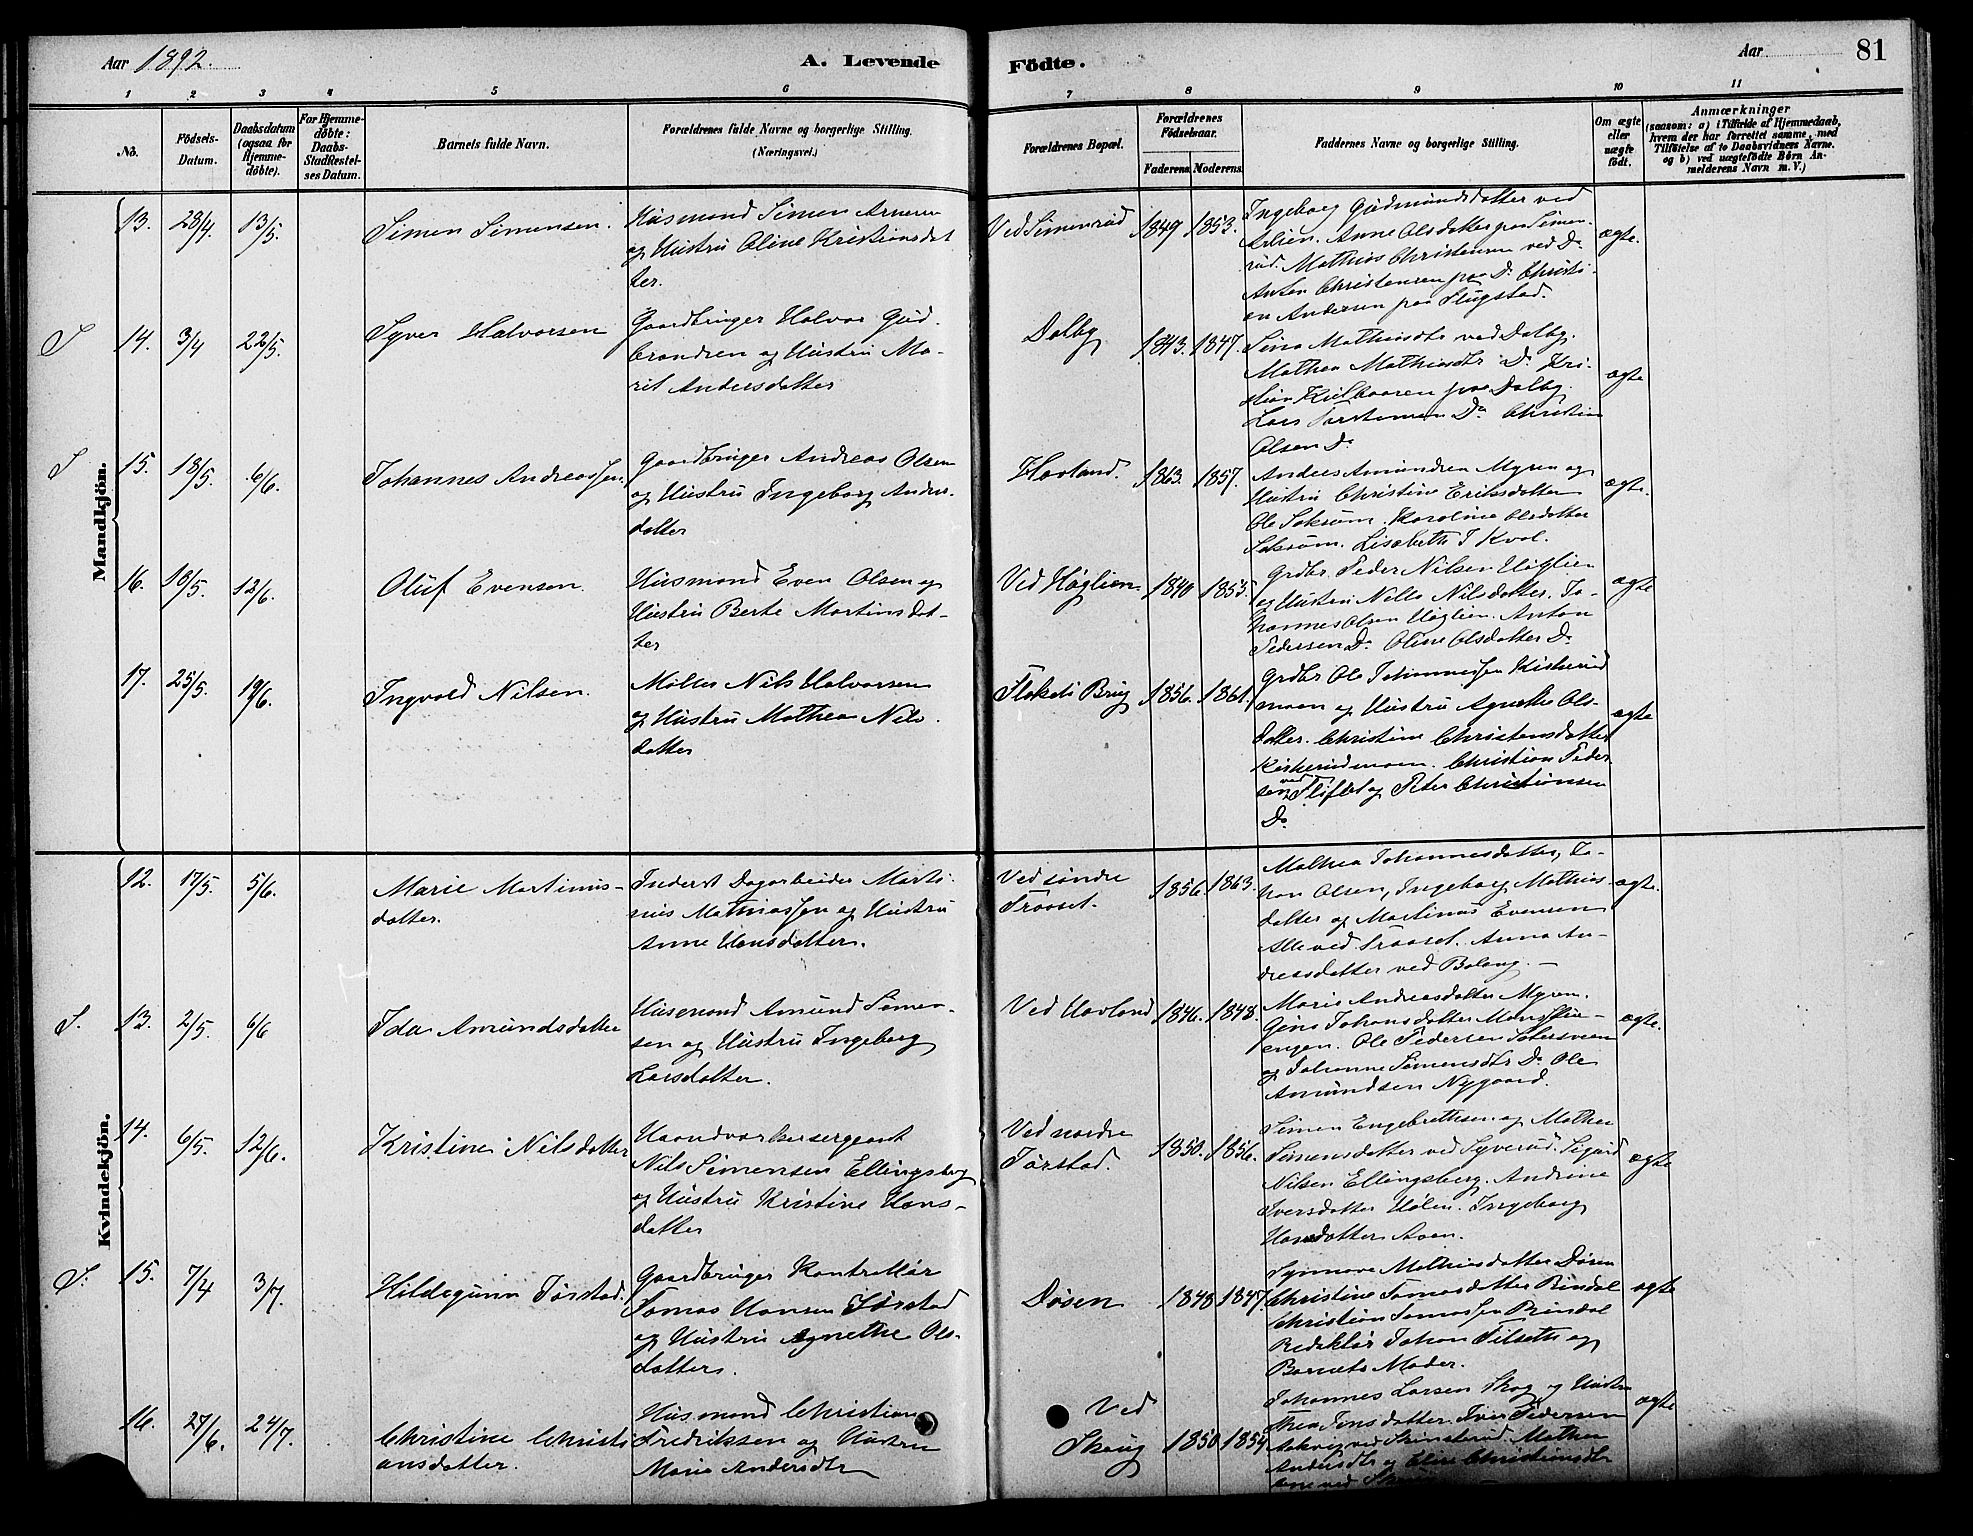 Aar 1892.
A. Levende
Födte.
Aar
81
1 2 3 4 5 6 7 8 9 10 11
No.
Födsels-Datum.
Daabsdatum (ogsaa for Hjemmedöbte).
For Hjemmedöbte: Daabs-Stadfestelses Datum.
Barnets fulde Navn.
Forældrenes fulde Navne og borgerlige Stilling.
(Næringsvei.)
Forældrenes Bopæl.
Forældrenes Födselsaar.
Faderens. Moderens.
Faddernes Navne og borgerlige Stilling.
Om ægte eller uægte födt.
Anmærkninger
(saasom: a) i Tilfælde af Hjemmedaab,
hvem der har forrettet samme, med
Tilföielse af to Daabsvidners Navne.
og b) ved uægtefödte Börn An-
melderens Navn m. V.)
Mandkjön.
13. 28/4 13/5.
Simen Simensen.
Husmand Simen Arnesen
og Hustru Oline Kristiansdat
ter.
Ved Simenrud 1849 1853.
Ingeborg Gudmundsdatter ved
Anne Olsdatter paa Simen-
rud. Mathias Christensen ved Do
Anton Christensen paa Do Christi-
an Andersen paa
ægte.
S 14. 3/4 22/5.
Syver Halvorsen
Gaardbruger Halvor Gud-
brandsen og Hustru Ma-
rit Andersdatter
Dalby 1843. 1847.
Mathiasdtr ved Dalby.
Mathea Mathiasdtr Do Kri-
stian paa Dalby.
Lars Torstensen Do Christian
Olsen Do
ægte
S 15. 18/5. 6/6.
Johannes Andreassen.
Gaardbruger Andreas Olsen
og Hustru Ingeborg Anders-
datter
Havland. 1863. 1857.
Andreas Amundsen Myren og
Hustru Christine Eriksdatter
Ole Karoline Olsdatter
Lisabeth J Kval.
ægte.
16. 18/5. 12/6.
Oluf Evensen.
Husmand Even Olsen og
Hustru Berte Martinsdat-
ter
Ved Høglien 1840 1853.
Grdbr. Peder Nilsen Høglien
og Hustru Nille Nilsdatter. Jo-
hannes Olsen Høglien. Anton
Pedersen Do Oline Olsdatter Do
ægte
17. 25/5. 19/6.
Ingvald Nilsen.
Møller Nils Halvorsen
og Hustru Mathea Nils-
datter
Brug 1856. 1861.
Grdbr Ole Johannessen Kiskerud
moen og Hustru Agnethe Ols-
datter. Christine Christensdatter
Kiskerudmoen. Christian Peder
sen ved og Peter Christiansen
Do
ægte
Kvindekjön.
12. 17/5. 5/6.
Marie Martinus-
datter.
Inderst Dagarbeider Marti-
nus Mathiassen og Hustru
Anne Hansdatter.
Ved søndre
Traaset. 1856. 1863.
Mathea Johannesdatter, Jo-
han Olsen, Ingeborg Mathias-
datter og Martinus Evensen
Alle ved Traaset. Anna An-
dreasdatter ved Balang. —
ægte.
S. 13. 2/5. 6/6
Ida Amundsdatter
Husmand Amund Simen-
sen og Hustru Ingeborg
Larsdatter.
Ved Havland 1846. 1848.
Marie Andreasdatter Myren.
Gina Johansdatter
engen. Ole Pedersen
og Johanne Simensdtr Do Ole
Amundsen Nygaard.
ægte.
14. 6/5. 12/6.
Kristine Nilsdatter
Haandværkersergeant
Nils Simensen Ellingsberg
og Hustru Kristine Hans-
datter
Ved nordre
Tørstad. 1850. 1856.
Simen Engebrethsen og Mathea
Simensdatter ved Syverud. Sigurd
Nilsen Ellingsberg. Andrine
Iversdatter Hølen. Ingeborg
Hansdatter Aaen.
ægte
S. 15. 7/4 3/7.
Hildegunn Tørstad.
Gaardbruger Kontrollør
Tomas Hansen Tørstad
og Hustru Agnethe Ols-
datter.
Døsen 1848 1847.
Synnøve Mathiasdatter Døsen
Christine Tomasdatter Rindal
Christian Tomassen Rindal
Redaktør Johan Filseth og
Barnets Moder.
ægte
16. 27/6. 24/7.
Christine Christi
ansdatter.
Husmand Christian
Fredriksen og Hustru
Marie Andersdtr
Ved
Skoug 1850 1854
Johannes Larsen Skog og Hustru
Thea Jensdatter. Iver Pedersen
ved Mathea
Andersdtr og Eline Christiansdtr
ægte